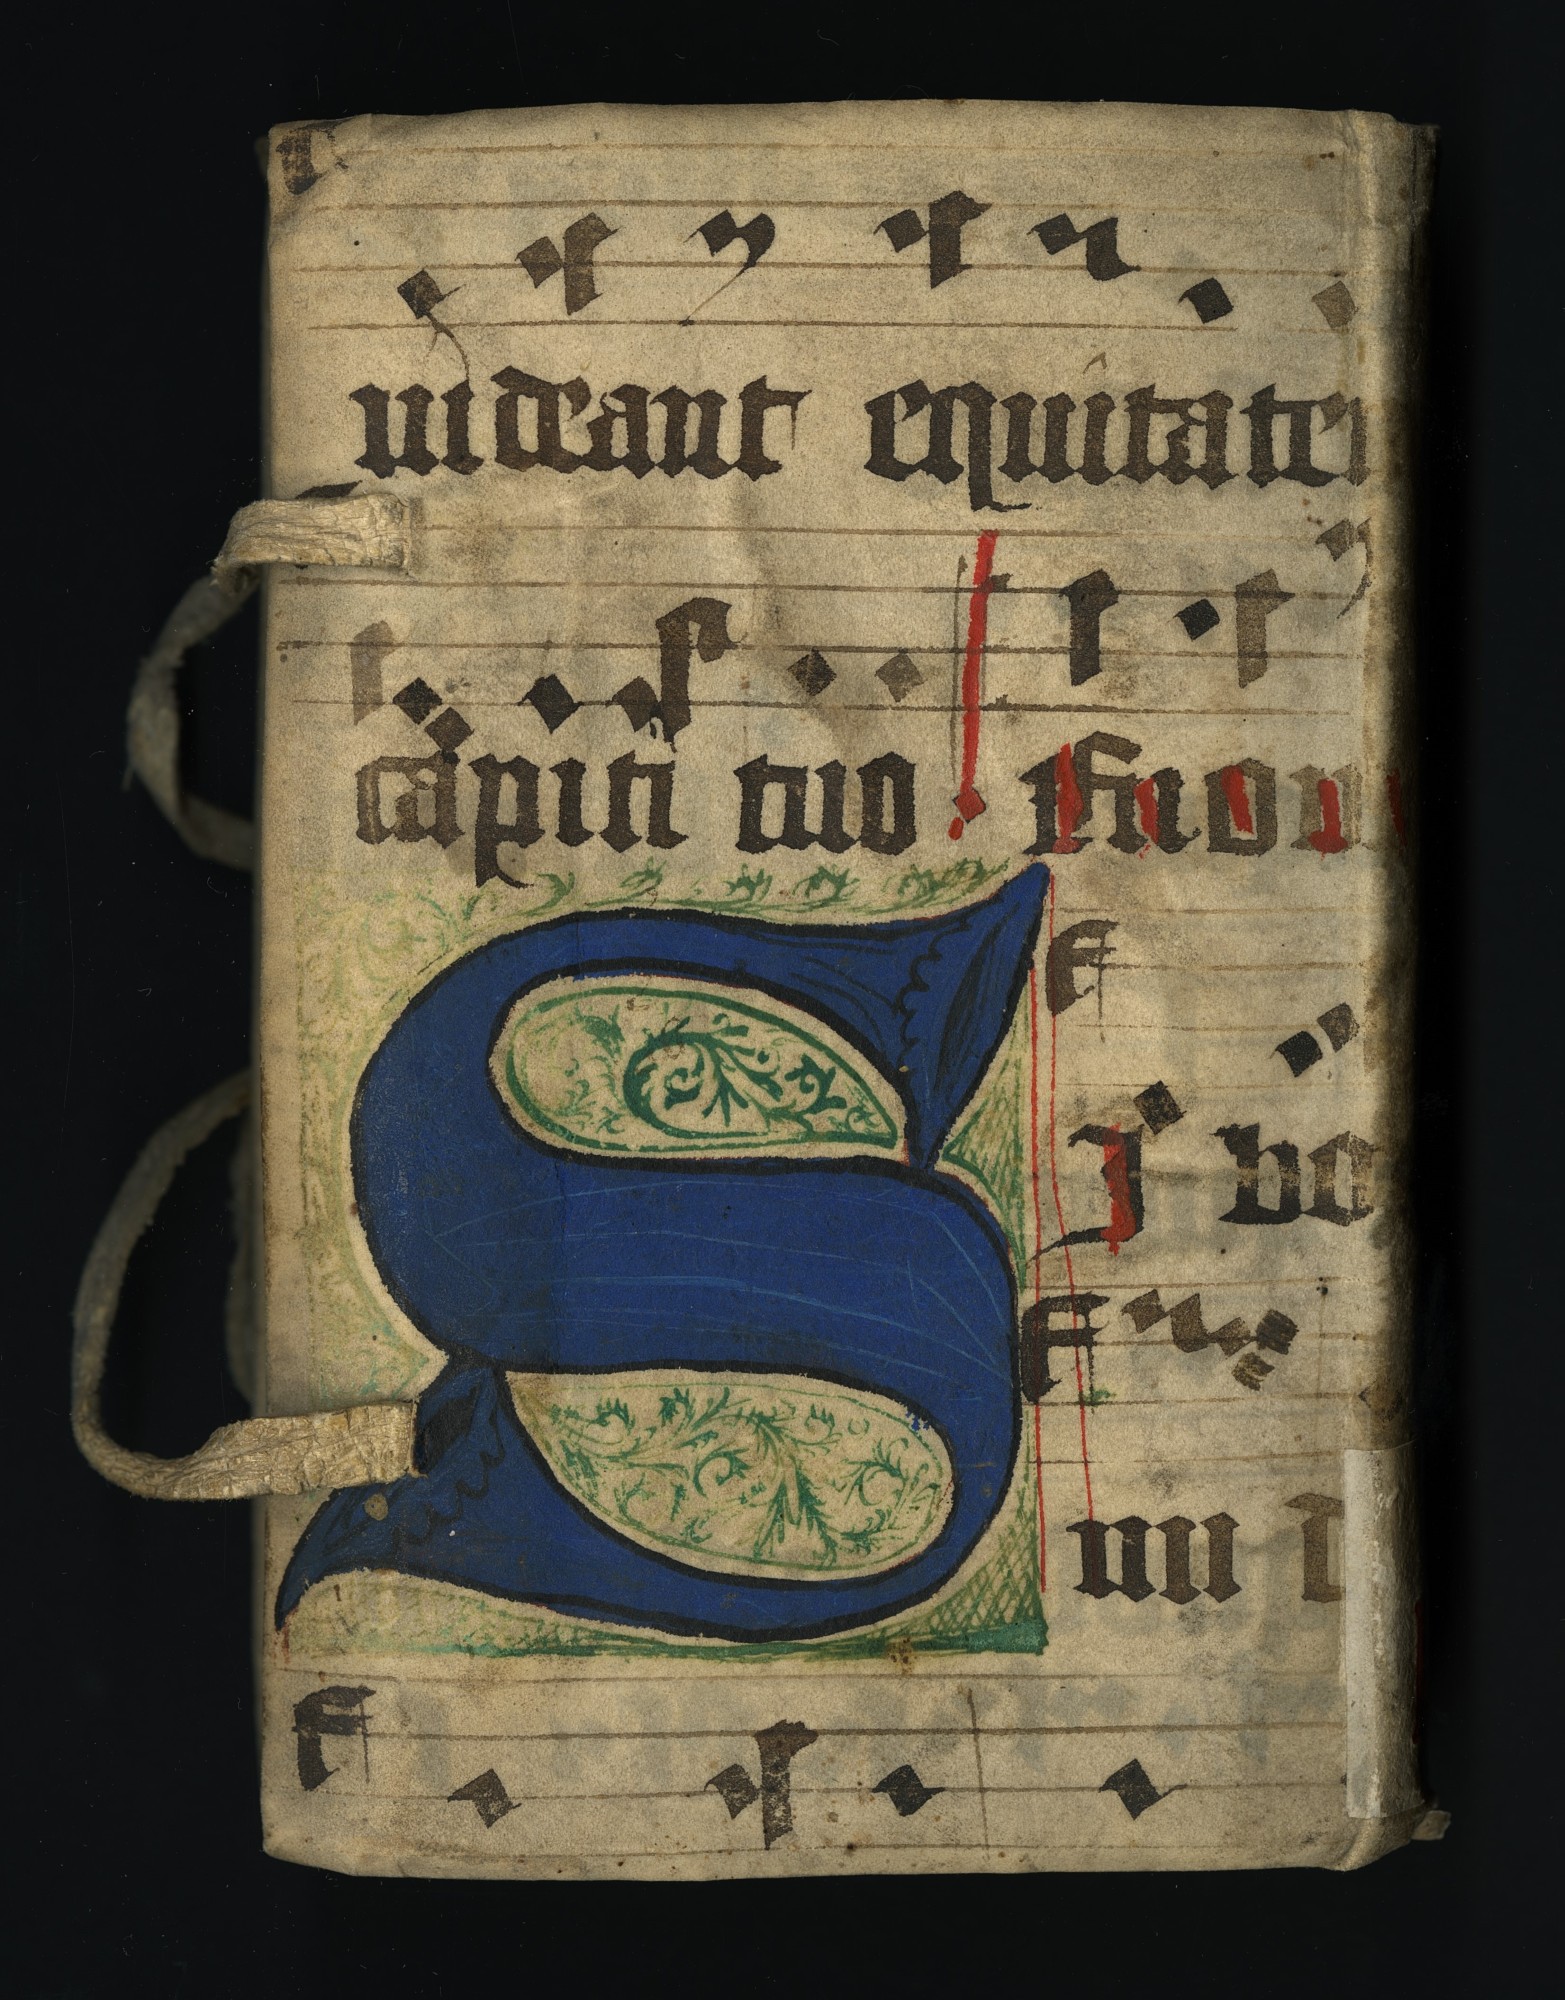 uideant equitate
capiti tuo
SI bo
nu